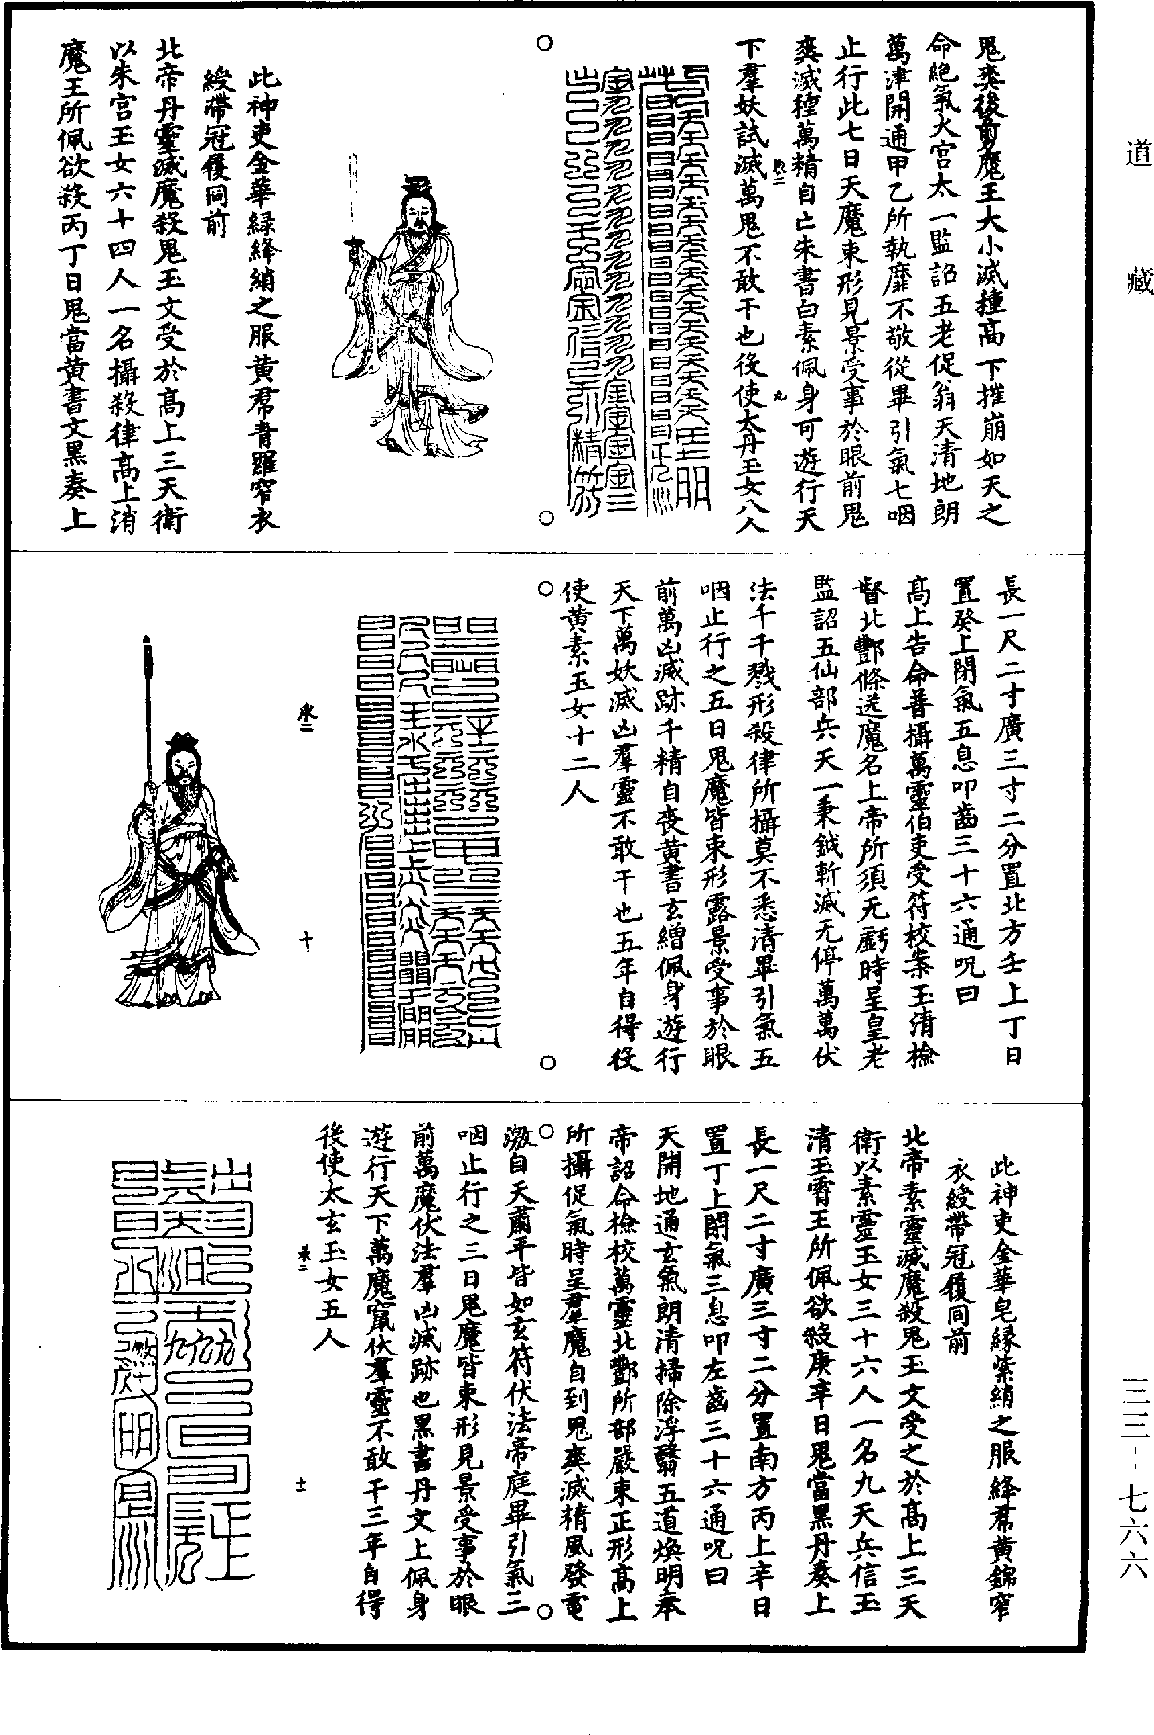 道藏
鬼爽後剪魔王大小滅種高下摧崩如天之
命絕氣火宮太一監詔五老促翁天清地朗
萬津開通甲乙所執靡不敬從畢引氣七咽
止行此七日天魔束形見景受事於眼前鬼
爽滅種萬精自亡朱書白素佩身可遊行天
下羣妖試滅萬鬼不敢干也後使太丹玉女八人
九
此神吏金華綠絳綃之服黃帬青羅窄衣
綬帶冠履同前
北帝丹靈滅魔殺鬼玉文受於高上三天衛
以朱宮玉女六十四人一名攝殺律高上消
魔王所佩欲殺丙丁日鬼當黃書文黑奏上
長一尺二寸廣三寸二分置北方壬上丁日
置癸上閉氣五息叩齒三十六通呪曰
高上告命普攝萬靈伯吏受符校案玉清檢
督北酆條送魔名上帝所須无虧時呈皇老
監詔五仙部兵天一秉鉞斬滅无停萬萬伏
法千千戮形殺律所攝莫不悉清畢引氣五
咽止行之五日鬼魔皆束形露景受事於眼
前萬凶滅跡千精自喪黃書玄繒佩身遊行
天下萬妖滅凶羣靈不敢干也五年自得役
使黃素玉女十二人
十
此神吏金華皂緣紫綃之服絳帬黃錦窄
衣綬帶冠履同前
北帝素靈滅魔殺鬼玉文受之於高上三天
衛以素靈玉女三十六人一名九天兵信玉
清玉霄王所佩欲殺庚辛日鬼當黑丹奏上
長一尺二寸廣三寸二分置南方丙上辛日
置丁上閉氣三息叩左齒三十六通呪曰
天開地通玄氣朗清掃除浮翳五道煥明奉
帝詔命檢校萬靈北酆所部嚴束正形高上
所攝促氣時呈羣魔自到鬼爽滅精風發電
激自天蕭平皆如玄符伏法帝庭畢引氣三
咽止行之三日鬼魔皆束形見景受事於眼
前萬魔伏法羣凶滅跡也黑書丹文上佩身
遊行天下萬魔竄伏羣靈不敢干三年自得
後使太玄玉女五人
士
三三-七六六